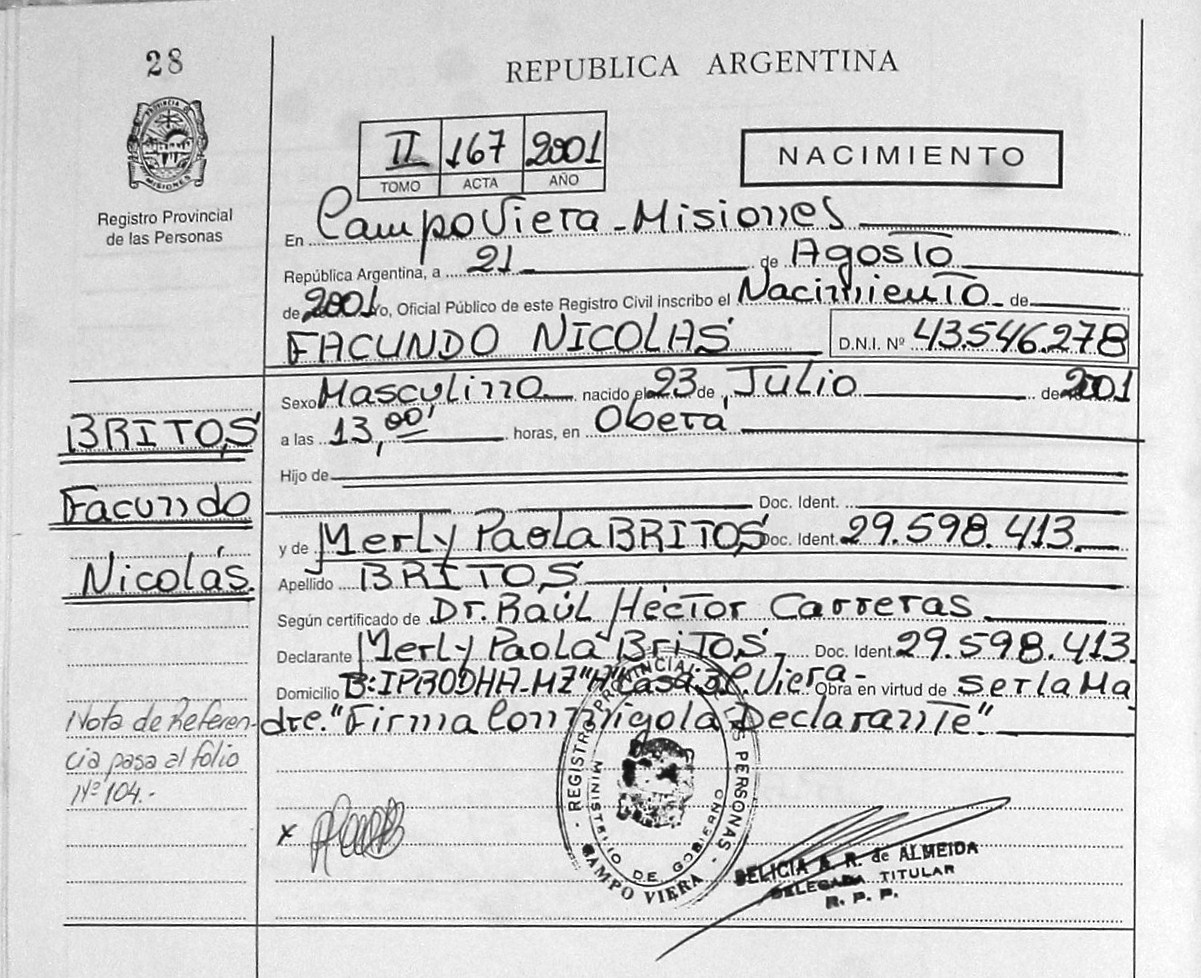 28
REPUBLICA ARGENTINA
PROVINCIA DE MISIONES
Registro Provincial
de las Personas
II 167 2001
TOMO ACTA AÑO
NACIMIENTO
En Campo Viera - Misiones
República Argentina, a 21 de Agosto
de 2001 Yo, Oficial Público de este Registro Civil inscribo el Nacimiento de
FACUNDO NICOLAS D.N.I. Nº 43.546.278
Sexo Masculino nacido el 23 de Julio de 2001
a las 13,00' horas, en Oberá
Hijo de
Doc. Ident.
y de Merly Paola BRITOS Doc. Ident. 29.598.413
Apellido BRITOS
Según certificado de Dr. Raúl Héctor Carreras
Declarante Merly Paola BRITOS Doc. Ident. 29.598.413.
Domicilio B: IPRODHA-MZ "A" Casa C. Viera- Obra en virtud de ser la Ma
dre. "Firma Conmigo la Declarante"
BRITOS
Facundo
Nicolás
Nota de Referen-
cia pasa al folio
Nº 104.-
x
REGISTRO PROVINCIAL DE LAS PERSONAS
MINISTERIO DE GOBIERNO
CAMPO VIERA
DELICIA A. R. de ALMEIDA
DELEGADA TITULAR
R. P. P.